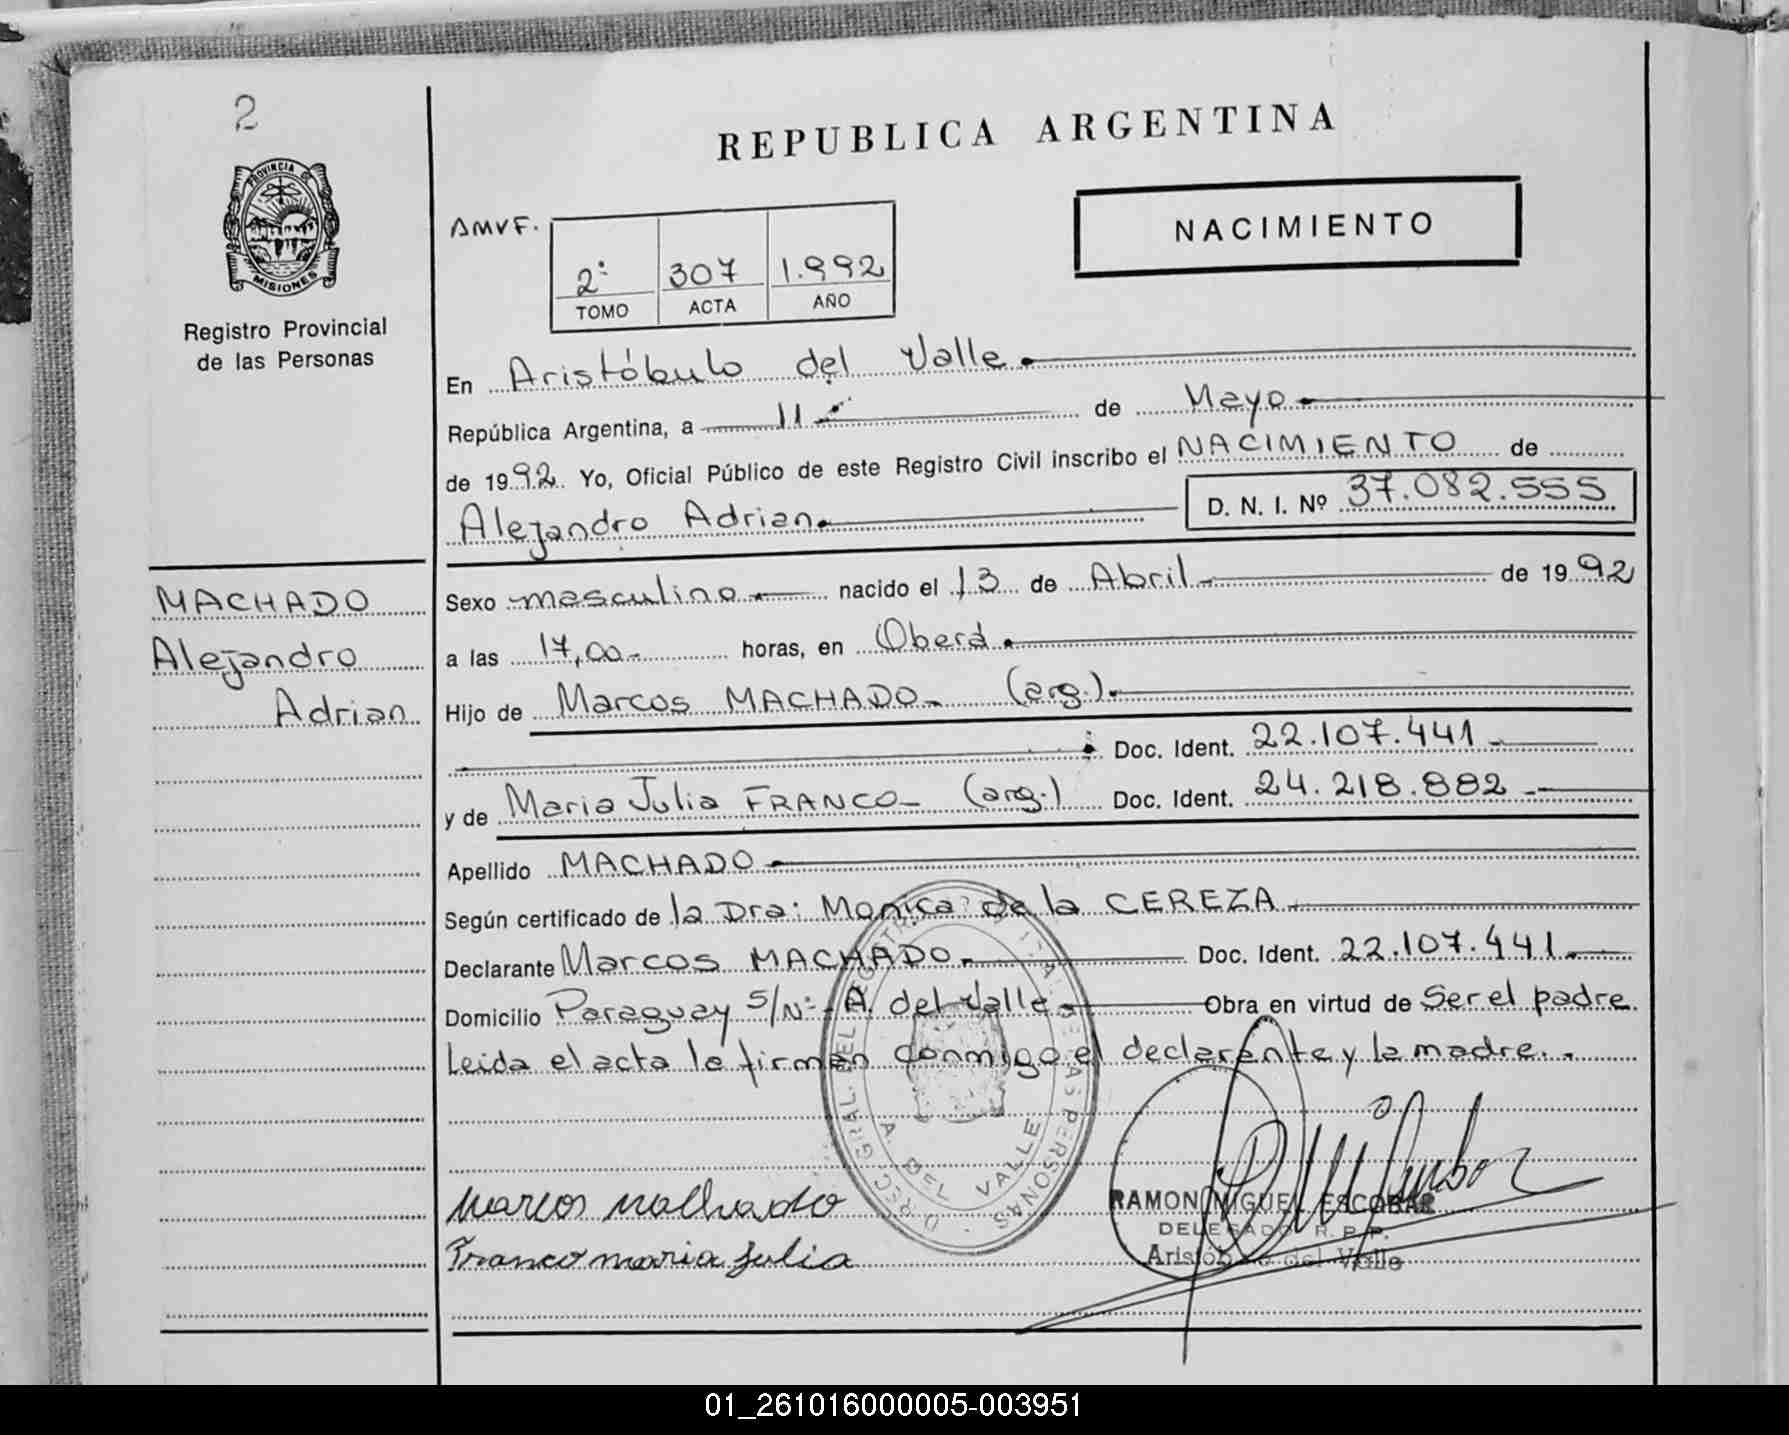 2
REPUBLICA ARGENTINA
PROVINCIA DE
MISIONES
Registro Provincial
de las Personas
AMVF.
2º 307 1.992
TOMO ACTA AÑO
NACIMIENTO
En Aristóbulo del Valle.
República Argentina, a 11 de Mayo
de 1992. Yo, Oficial Público de este Registro Civil inscribo el NACIMIENTO de
Alejandro Adrian. D. N. I. Nº 37.082.555
MACHADO
Alejandro
Adrian
Sexo masculino nacido el 13 de Abril de 1992
a las 17,00 horas, en Oberá.
Hijo de Marcos MACHADO (arg.)
Doc. Ident. 22.107.441
y de Maria Julia FRANCO (arg.) Doc. Ident. 24.218.882
Apellido MACHADO
Según certificado de la Dra: Monica de la CEREZA
Declarante Marcos MACHADO Doc. Ident. 22.107.441
Domicilio Paraguay S/Nº A. del Valle Obra en virtud de Ser el padre.
Leida el acta la firman conmigo el declarante y la madre.
DIREC. GRAL. DEL REGISTRO DE LAS PERSONAS
A. DEL VALLE
Marcos Malhado
Franco maria Julia
RAMON MIGUEL ESCOBAR
DELEGADO R. P. P.
Aristóbulo del Valle
01_261016000005-003951